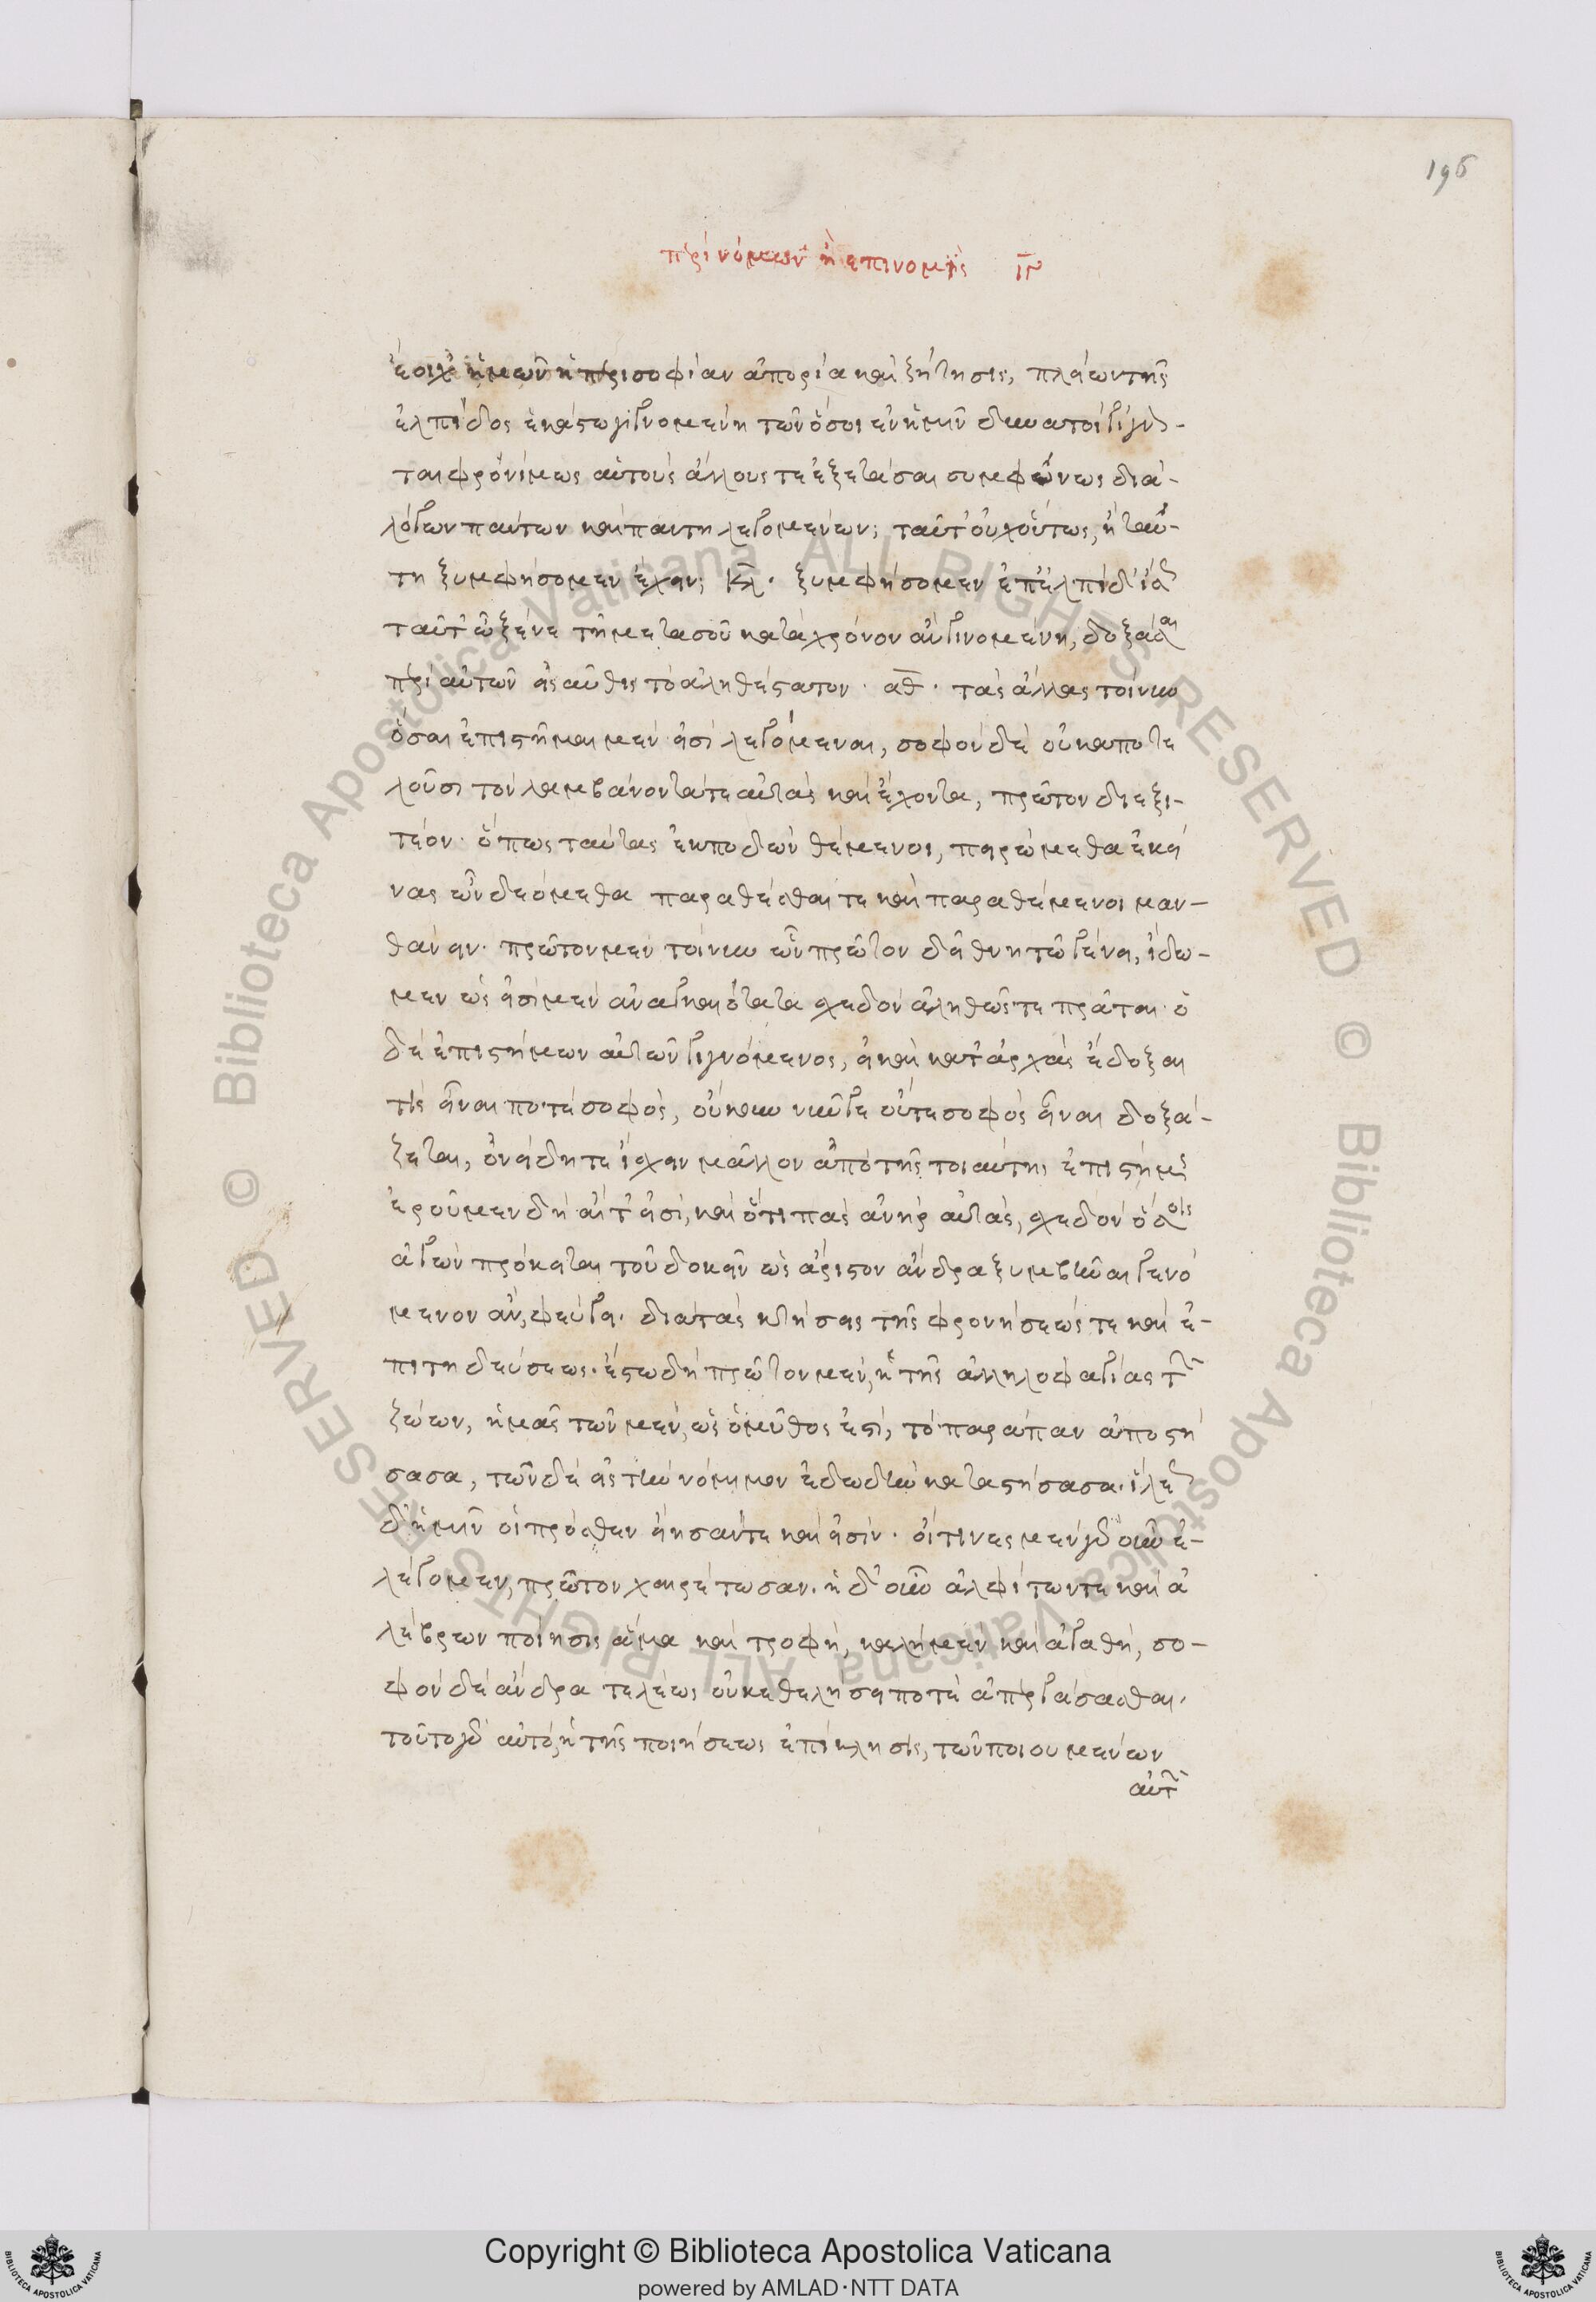 περὶ νόμων ἢ ἐπινομὶς ιγ
196
ἔοιχ' ἡμῶν ἡ περὶ σοφίαν ἀπορία καὶ ζήτησις, πλείων τῆς
ἐλπίδος ἑκάστω γιγνομένη τῶν ὅσοι ἐν ἡμῖν δυνατοὶ γίγνον-
ται φρονίμως αὑτοὺς ἄλλους τε ἐξετάσαι συμφώνως διὰ-
λόγων πάντων καὶ πάντη λεγομένων; ταῦτ' οὐχ οὕτως, ἢ ταύ-
τη ξυμφήσομεν ἔχειν; κλ. ξυμφήσομεν ἐπ' ἐλπίδ' ἴσως
ταῦτ' ὦ ξένε τῆ μετὰ σοῦ κατὰ χρόνον ἂν γινομένη, δοξάσαι
περὶ αὐτῶν εἰς αὖθις τὸ ἀληθέστατον. αθ. τὰς ἄλλας τοίνυν
ὅσαι ἐπιστῆμαι μέν εἰσι λεγόμεναι, σοφὸν δὲ οὐκ ἀποτε
λοῦσι τὸν λαμβάνοντά τε αὐτὰς καὶ ἔχοντα, πρῶτον διεξι-
τέον. ὅπως ταύτας ἐκποδὼν θέμενοι, πειρώμεθα ἐκεί
νας ὧν δεόμεθα παραθέσθαι τε καὶ παραθέμενοι μαν-
θάνειν. πρῶτον μὲν τοίνυν ὧν πρῶτον δεῖ θνητῶ γένει, ἴδω-
μεν ὡς εἰσὶ μὲν ἀναγκαιόταται σχεδὸν ἀληθῶς τε πρῶται. ὁ
δὲ ἐπιστήμων αὐτῶν γιγνόμενος, εἰ καὶ κατ' ἀρχὰς ἔδοξαι
τὶς εἶναι ποτὲ σοφὸς, οὔκουν νῦν γε οὔτε σοφὸς εἶναι δοξά-
ζεται, ὀνείδη τε ἴσχειν μᾶλλον ἀπὸ τῆς τοιαύτης ἐπιστήμης
ἐροῦμεν δὴ αἵ τ' εἰσὶ, καὶ ὅτι πᾶς ἀνὴρ αὐτὰς, σχεδὸν ὅσοις
ἀγὼν πρόκειται τοῦ δοκεῖν ὡς ἄριστον ἄνδρα ξυμβῆναι γενό
μενον ἂν, φεύγει. διὰ τὰς κτήσεις τῆς φρονήσεώς τε καὶ ἐ-
πιτηδεύσεως. ἔστω δὴ πρῶτον μὲν, ἡ τῆς ἀλληλοφαγίας τῶν
ζώων, ἡμᾶς τῶν μὲν, ὡς ὁ μῦθος ἐστὶ, τὸ παράπαν ἀποστή
σασα, τῶν δὲ εἰς τὴν νόμιμον ἐδωδὴν καταστήσασα. ἵλεῳ
δ' ἡμῖν οἱ πρόσθεν εἴησάν τε καὶ εἰσίν. οἵτινες μὲν γὰρ οὖν ἐ-
λέγομεν, πρῶτον χαιρέτωσαν. ἡ δ' οὖν ἀλφίτων τε καὶ ἀ
λεύρων ποίησις ἅμα καὶ τροφὴ, καλὴ μὲν καὶ ἀγαθὴ, σο-
φὸν δὲ ἄνδρα τελέως οὐκ ἐθελήσει ποτὲ ἀπεργάσασθαι.
τοῦτο γὰρ αὐτὸ, ἡ τῆς ποιήσεως ἐπίκλησις, τῶν ποιουμένων
αὐτῶν
© Biblioteca Apostolica Vaticana ALL RIGHTS RESERVED © Biblioteca Apostolica Vaticana ALL RIGHTS RESERVED
Copyright © Biblioteca Apostolica Vaticana
powered by AMLAD・NTT DATA
BIBLIOTECA APOSTOLICA VATICANA
BIBLIOTECA APOSTOLICA VATICANA